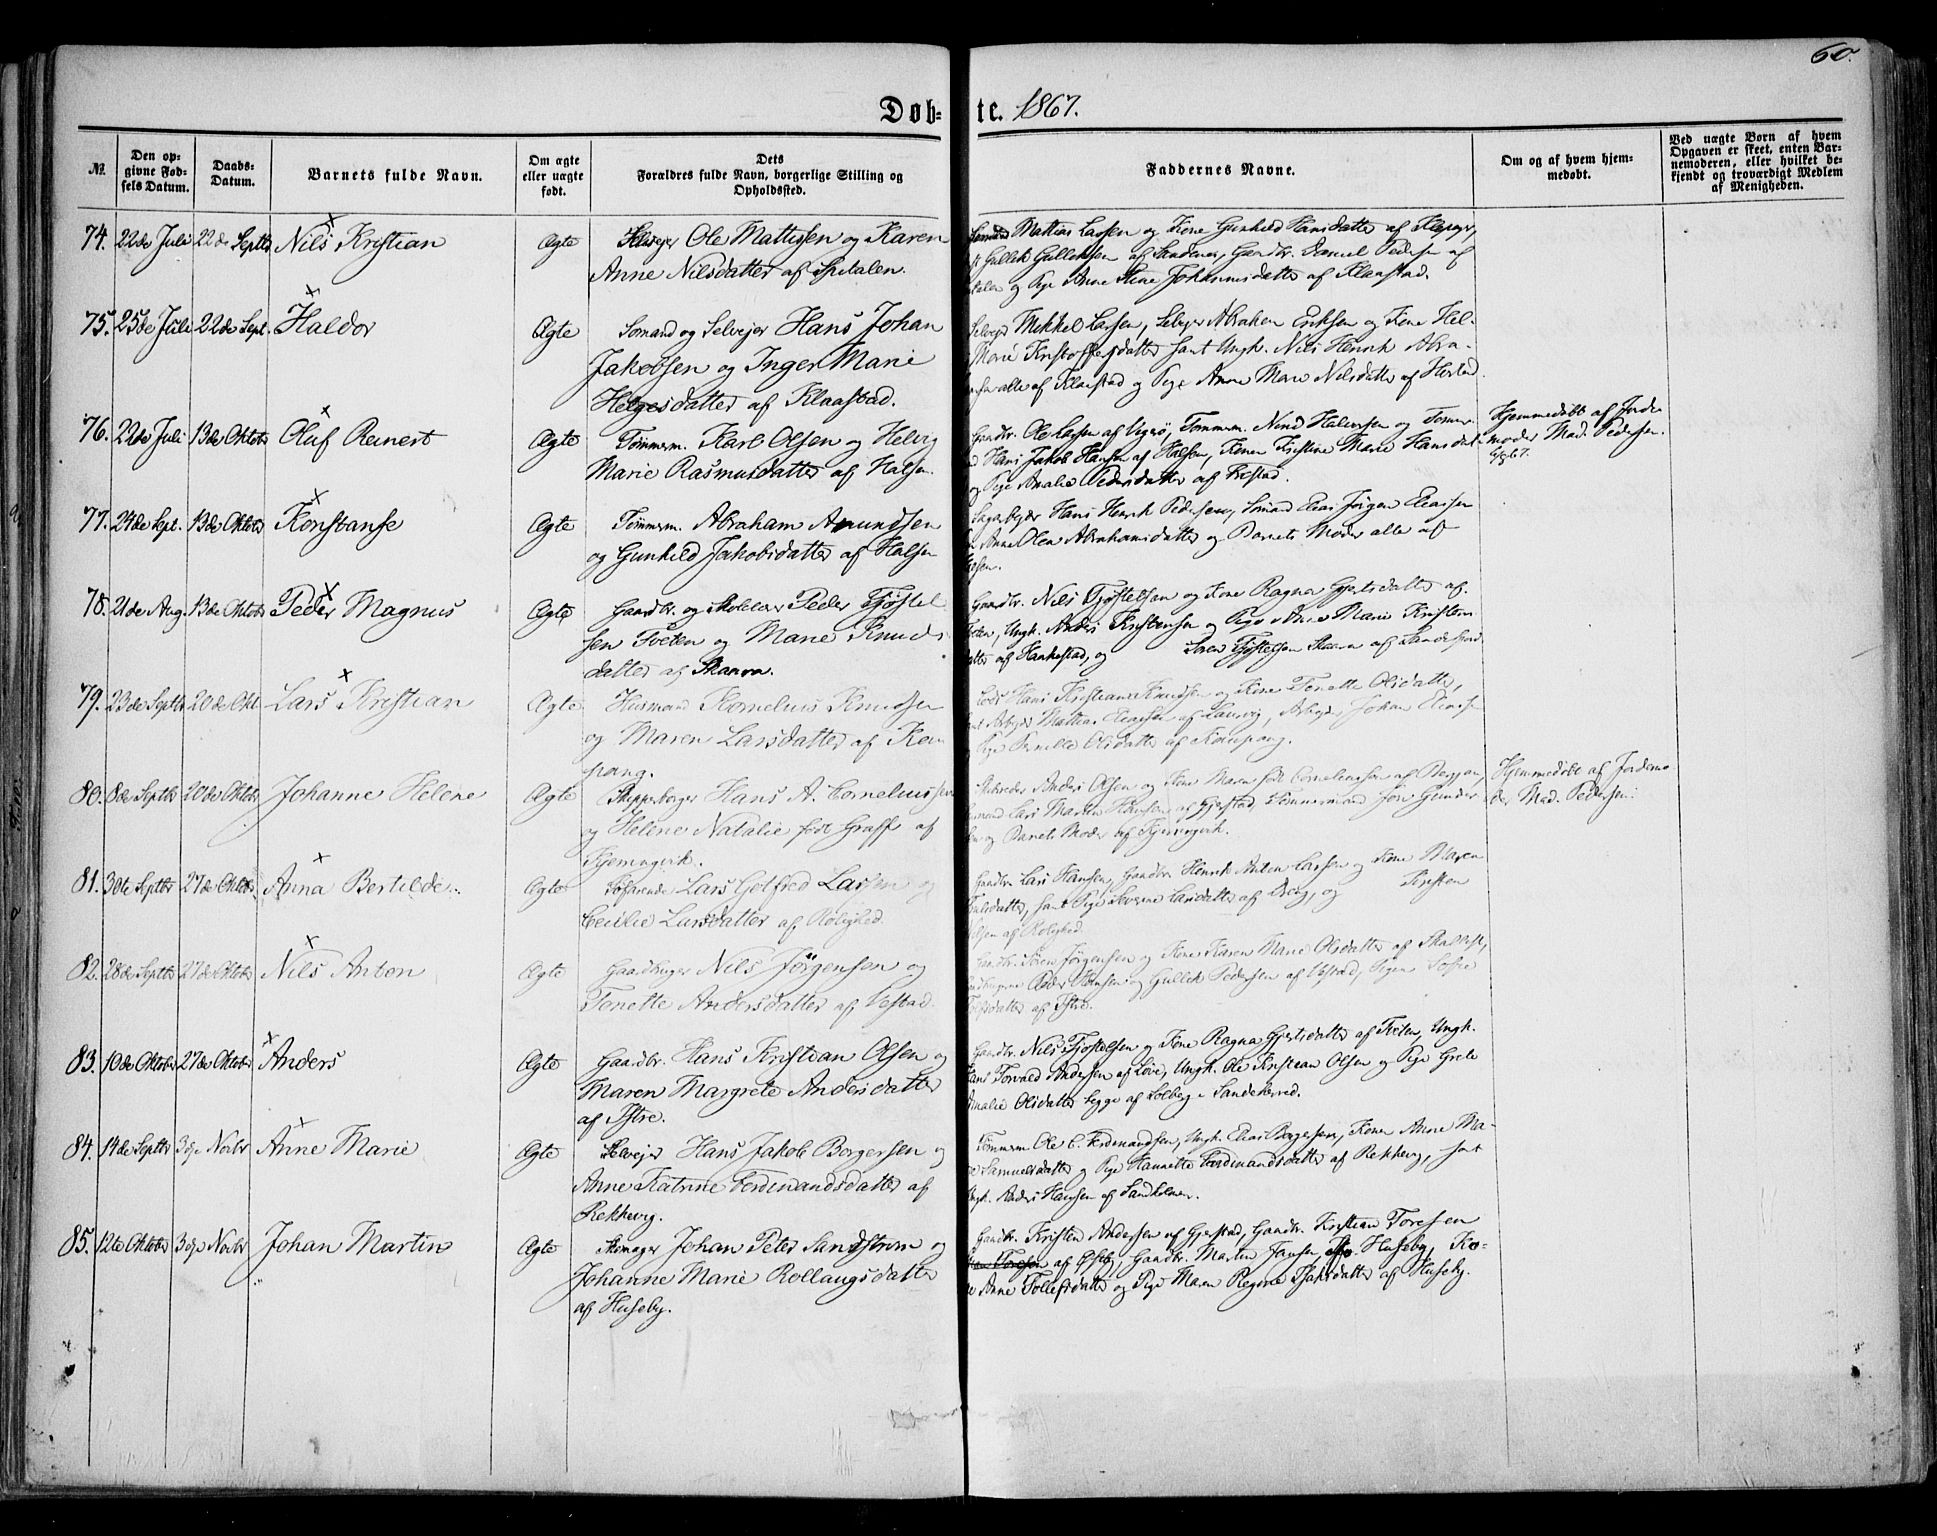 60.
Døb-te. 1867.
No. Den opgivne Fødsels Datum. Daabs-Datum. Barnets fulde Navn. Om ægte eller uægte født. Dets Forældres fulde Navn, borgerlige Stilling og Opholdssted. Faddernes Navne. Om og af hvem hjemmedøbt. Ved uægte Børn af hvem Opgaven er skeet, enten Barnemoderen, eller hvilket bekjendt og troværdigt Medlem af Menigheden.
74. 22de Juli 22de Septbr Nils Kristian Ægte Selvejer Ole Mathisen og Karen Mattias Larsen og Kone Gunhild Hansdatter af
Anne Nilsdatter af Spitalen. Gullik Gulliksen af Sandenes, Gaardbr. Samuel Pedersen af
og Pige Anne Stine Johannesdatter af Klaastad.
75. 25de Juli 22de Sept. Haldor Ægte Sømand og Selvejer Hans Johan Selvejer Mikkel Larsen, Selvejer Abraham Eriksen og Kone Hel-
Jakobsen og Inger Marie Marie Kristoffersdatter samt Ungk. Nils Henrik Abra-
Helgesdatter af Klaastad. alle af Klaastad og Pige Anne Marie Nilsdatter af
76. 22de Juli 13de Oktobr Oluf Reinert Ægte Tømmerm. Karl Olsen og Helvig Gaardbr. Ole Larsen af Tømmerm. Halvorsen og Tømmer- Hjemmedøbt af Jorde-
Marie Rasmusdatter af Halsen Hans Jakob Hansen af Halsen, Konen Kristine Marie Hansdat- moder Mad. Pedersen.
og Pige Amalie Pedersdatter af
77. 24de Sept. 13de Oktobr Konstanse Ægte Tømmerm. Abraham Amundsen Hans Henrik Pedersen, Sømand Elias Jørgen Eliassen
og Gunhild Jakobsdatter af Halsen Anne Olea Abrahamsdatter og Barnets Moder alle af
78. 21de Aug. 13de Oktobr Peder Magnus Ægte Gaardbr. og Peder Tjøstel- Gaardbr. Nils Tjøstelsen og Kone Ragna Gjertsdatter af
sen Tveten og Marie Knuds- Ungk. Anders Kristensen og Pige Anne Marie Kristens-
datter af Skaara. af Haukestad, og Søren Tjøstelsen Skaara af Sandefjord
79. 23de Septbr 20de Okt. Lars Kristian Ægte Husmand Kornelius Knudsen Lods Hans Kristian Knudsen og Kone Tonette Olsdatter,
og Maren Larsdatter af Kau- Mattias Eliassen af Laurvig, Arbejder Johan
pang. Pige Pernille Olsdatter af Kaupang.
80. 8de Septbr 20de Oktobr Johanne Helene Ægte Skipperborger Hans A. Corneliussen Anders Olsen og Kone Maren født Corneliussen af Hjemmedøbt af Jordemo-
og Helene Natalie født Graff af Lars Martin Hansen af Gjerstad, Tømmermand Jørn Gunder- der Mad. Pedersen.
Kjerringvik. og Barnets Moder af Kjerringvik.
81. 30te Septbr 27de Oktobr Anna Bertilde Ægte Søfarende Lars Gotfred Larsen og Gaardbr. Lars Hansen, Gaardbr. Henrik Anton Larsen og Kone Maren
Cecilie Larsdatter af Rolighed. samt Pige Severine Larsdatter af Berg, og Kristen
Olsen af Rolighed.
82. 28de Septbr 27de Oktobr Nils Anton Ægte Gaardbruger Nils Jørgensen og Gaardbr. Søren Jørgensen og Kone Karen Marie Olsdatter af
Tonette Andersdatter af Vestad. Peder Hansen og Gullik Pedersen af Vestad, Pigen Sofie
af Istre.
83. 10de Oktober 27de Oktobr Anders Ægte Gaardbr. Hans Kristian Olsen og Gaardbr. Nils Tjøstelsen og Kone Ragna Gjertsdatter af Tveten, Ungk.
Maren Margrete Andersdatter Hans Torvald Andersen af Løve, Ungk. Ole Kristian Olsen og Pige Grete
af Istre. Amalie Olsdatter begge af Solberg i Sandeherred.
84. 14de Septbr 3die Novbr Anne Marie Ægte Selvejer Hans Jakob Borgersen og Tømmerm. Ole C. Ferdinandsen, Ungk. Elias Borgersen, Konen Anne Ma-
Anne Katrine Ferdinandsdatter af Samuelsdatter og Pige Hannette Ferdinandsdatter af Rekkevig, samt
Rekkevig. Ungk. Anders Hansen af Sandholmen.
85. 12te Oktober 3die Novbr Johan Martin Ægte Skomager Johan Peter Sandstrøm og Gaardbr. Kristen Andersen af Gjerstad, Gaardbr. Kristian Toresen
Johanne Marie Rollaugsdatter af Østby, Gaardbr. Martin Jansen, Huseby, Ko-
af Huseby. Anne Tollefsdatter og Pige Maren Regine Isaksdatter af Huseby.